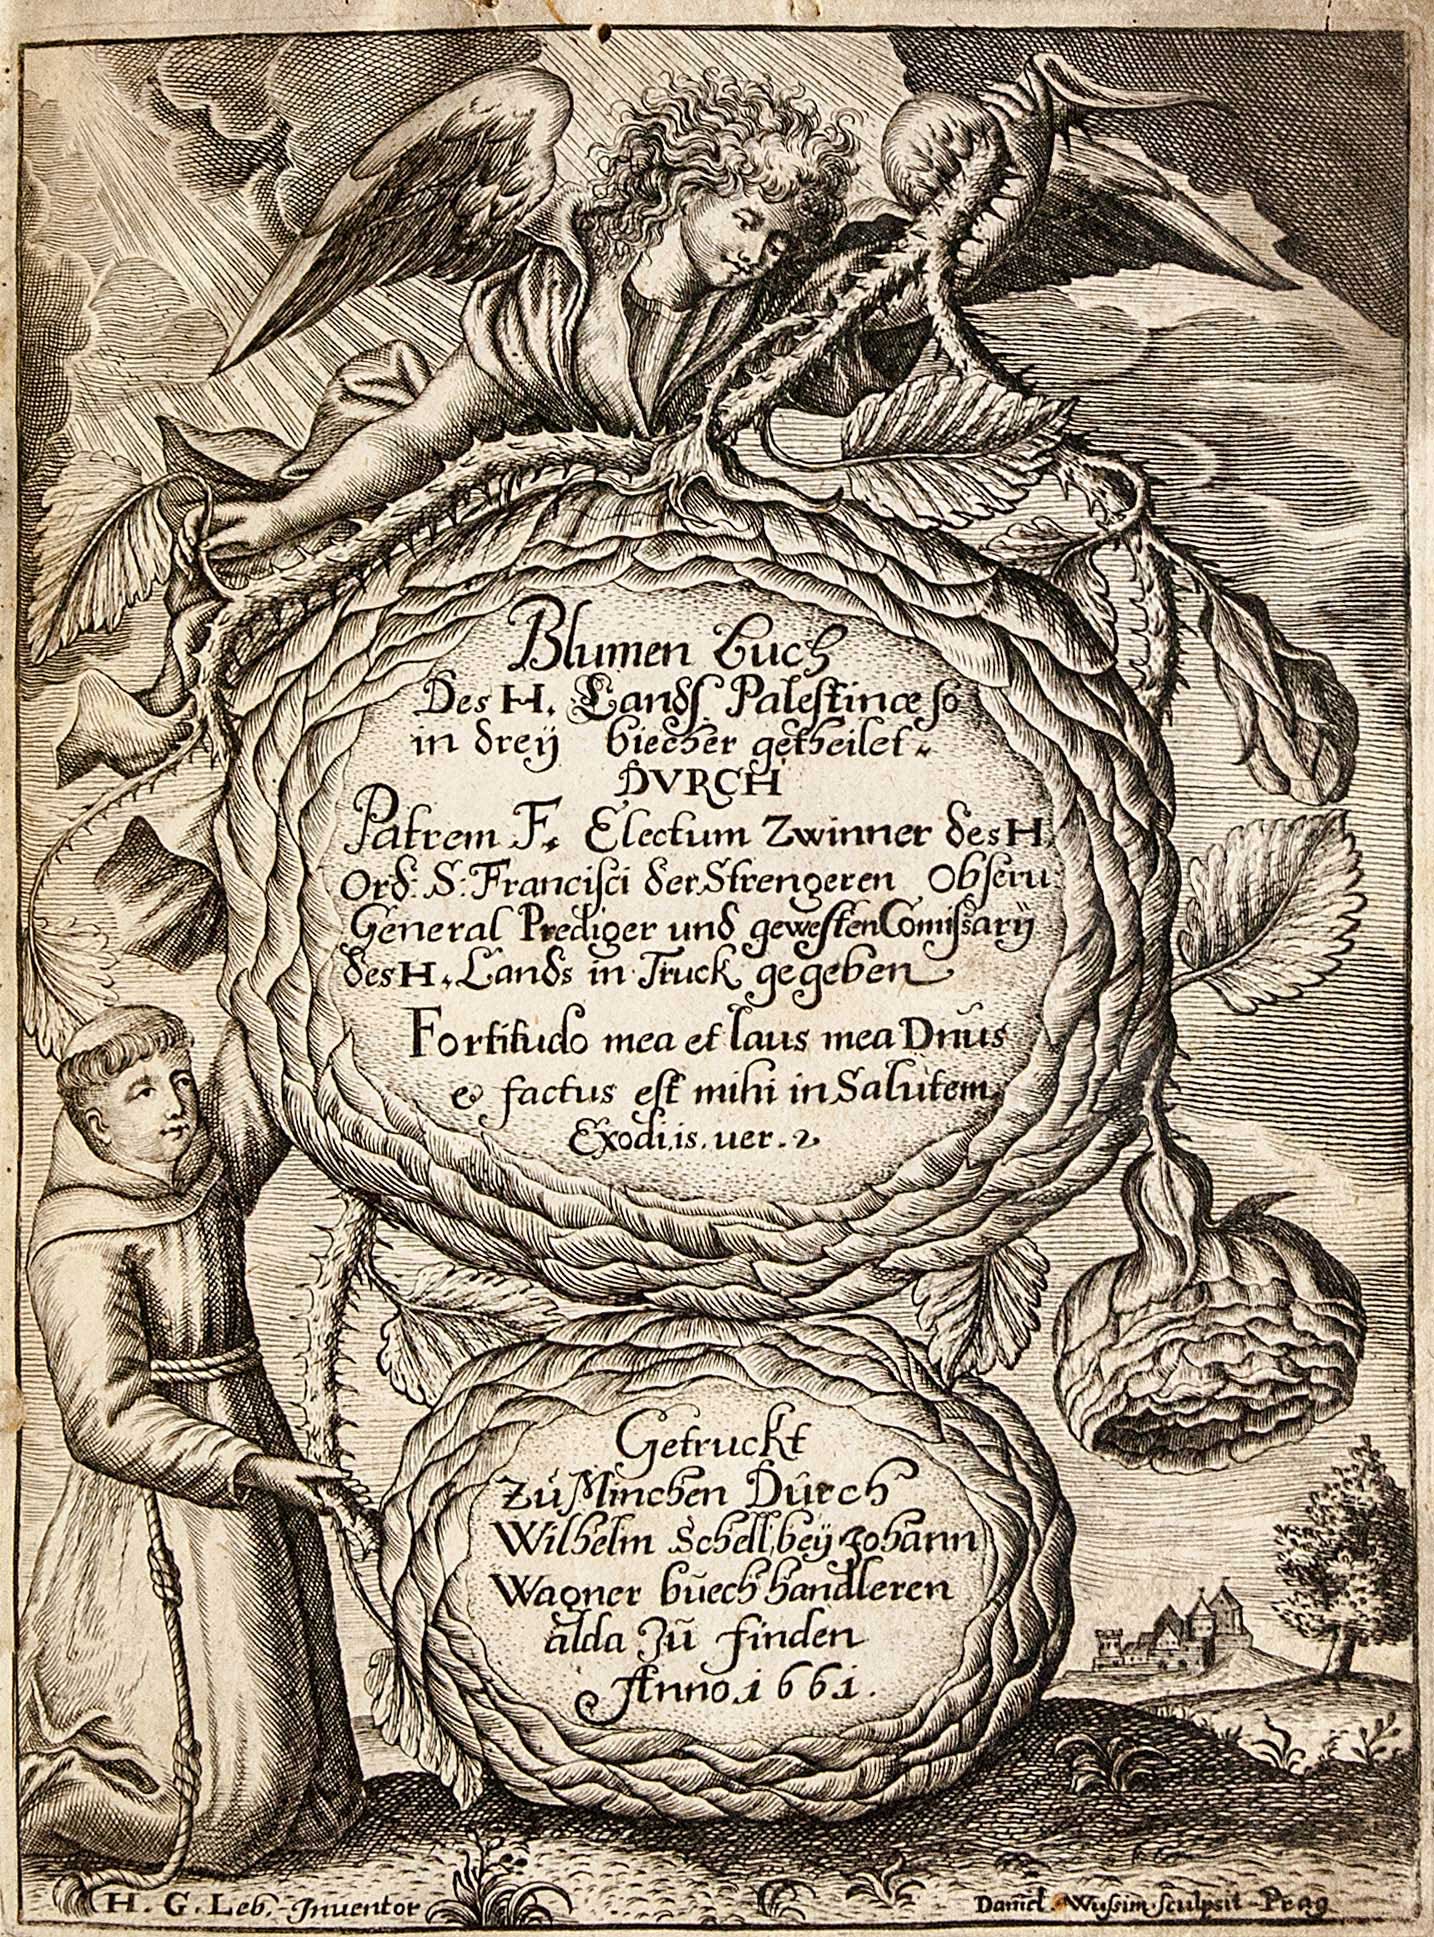 Blumen buch
Des H. Lands Palestinæ so
in dreÿ biecher getheilet
DVRCH
Patrem F. Electum Zwinner des H.
Ord: S: Francisci der Strengeren Obseru:
General Prediger und gewesten Comissarÿ
des H. Lands in Truck gegeben
Fortitudo mea et laus mea Dnūs
& factus est mihi in Salutem
Exodi. 15. uer. 2
Getruckt
Zŭ Minchen Dŭrch
Wilhelm Schell, beÿ Johann
Wagner bŭech handleren
alda Zŭ finden
Anno. 1661.
H. G. Leb. Inuentor
Daniel. Wussim sculpsit Prag